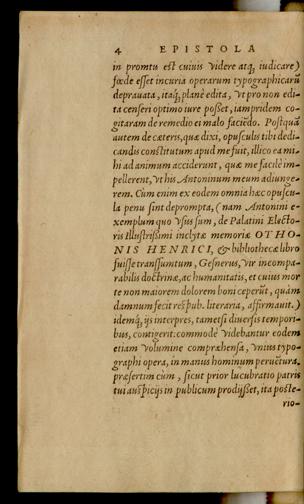 4 EPISTOLA
in promtu est cuiuis videre atq; iudicare)
fœde esset incuria operarum typographicarũ
deprauata, itaq; planè edita, vt pro non edi-
ta censeri optimo iure posset, iampridem co-
gitaram de remedio ei malo faciẽdo. Postquã
autem de cæteris, quæ dixi, opusculis tibi dedi-
candis cõstitutum apud me fuit, illico ea mi-
hi ad animum acciderunt, quæ me facilè im-
pellerent, vt his Antoninum meum adiunge-
rem. Cum enim ex eodem omnia hæc opuscu-
la penu sint deprompta, (nam Antonini e-
xemplum quo vsus sum, de Palatini Electo-
ris Illustrißimi inclytæ memoriæ OTHO-
NIS HENRICI, & bibliothecæ libro
fuisse transsumtum, Gesnerus, vir incompa-
rabilis doctrinæ, ac humanitatis, et cuius mor
te non maiorem dolorem boni ceperũt, quàm
damnum fecit resp̃ub. literaria, affirmauit.)
idemq; ijs interpres, tametsi diuersis tempori-
bus, contigerit: commodè videbantur eodem
etiam volumine compræhensa, vnius typo-
graphi opera, in manus hominum peruẽtura.
præsertim cùm, sicut prior lucubratio patris
tui auspicijs in publicum prodijsset, ita poste-
rio-